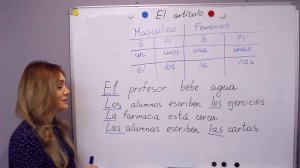 El artículo
Masculino Femenino
S Pl S Pl
un unos una unas
el los la las
El profesor bebe agua.
Los alumnos escriben los ejercicios.
La farmacia está cerca.
Las alumnas escriben las cartas.